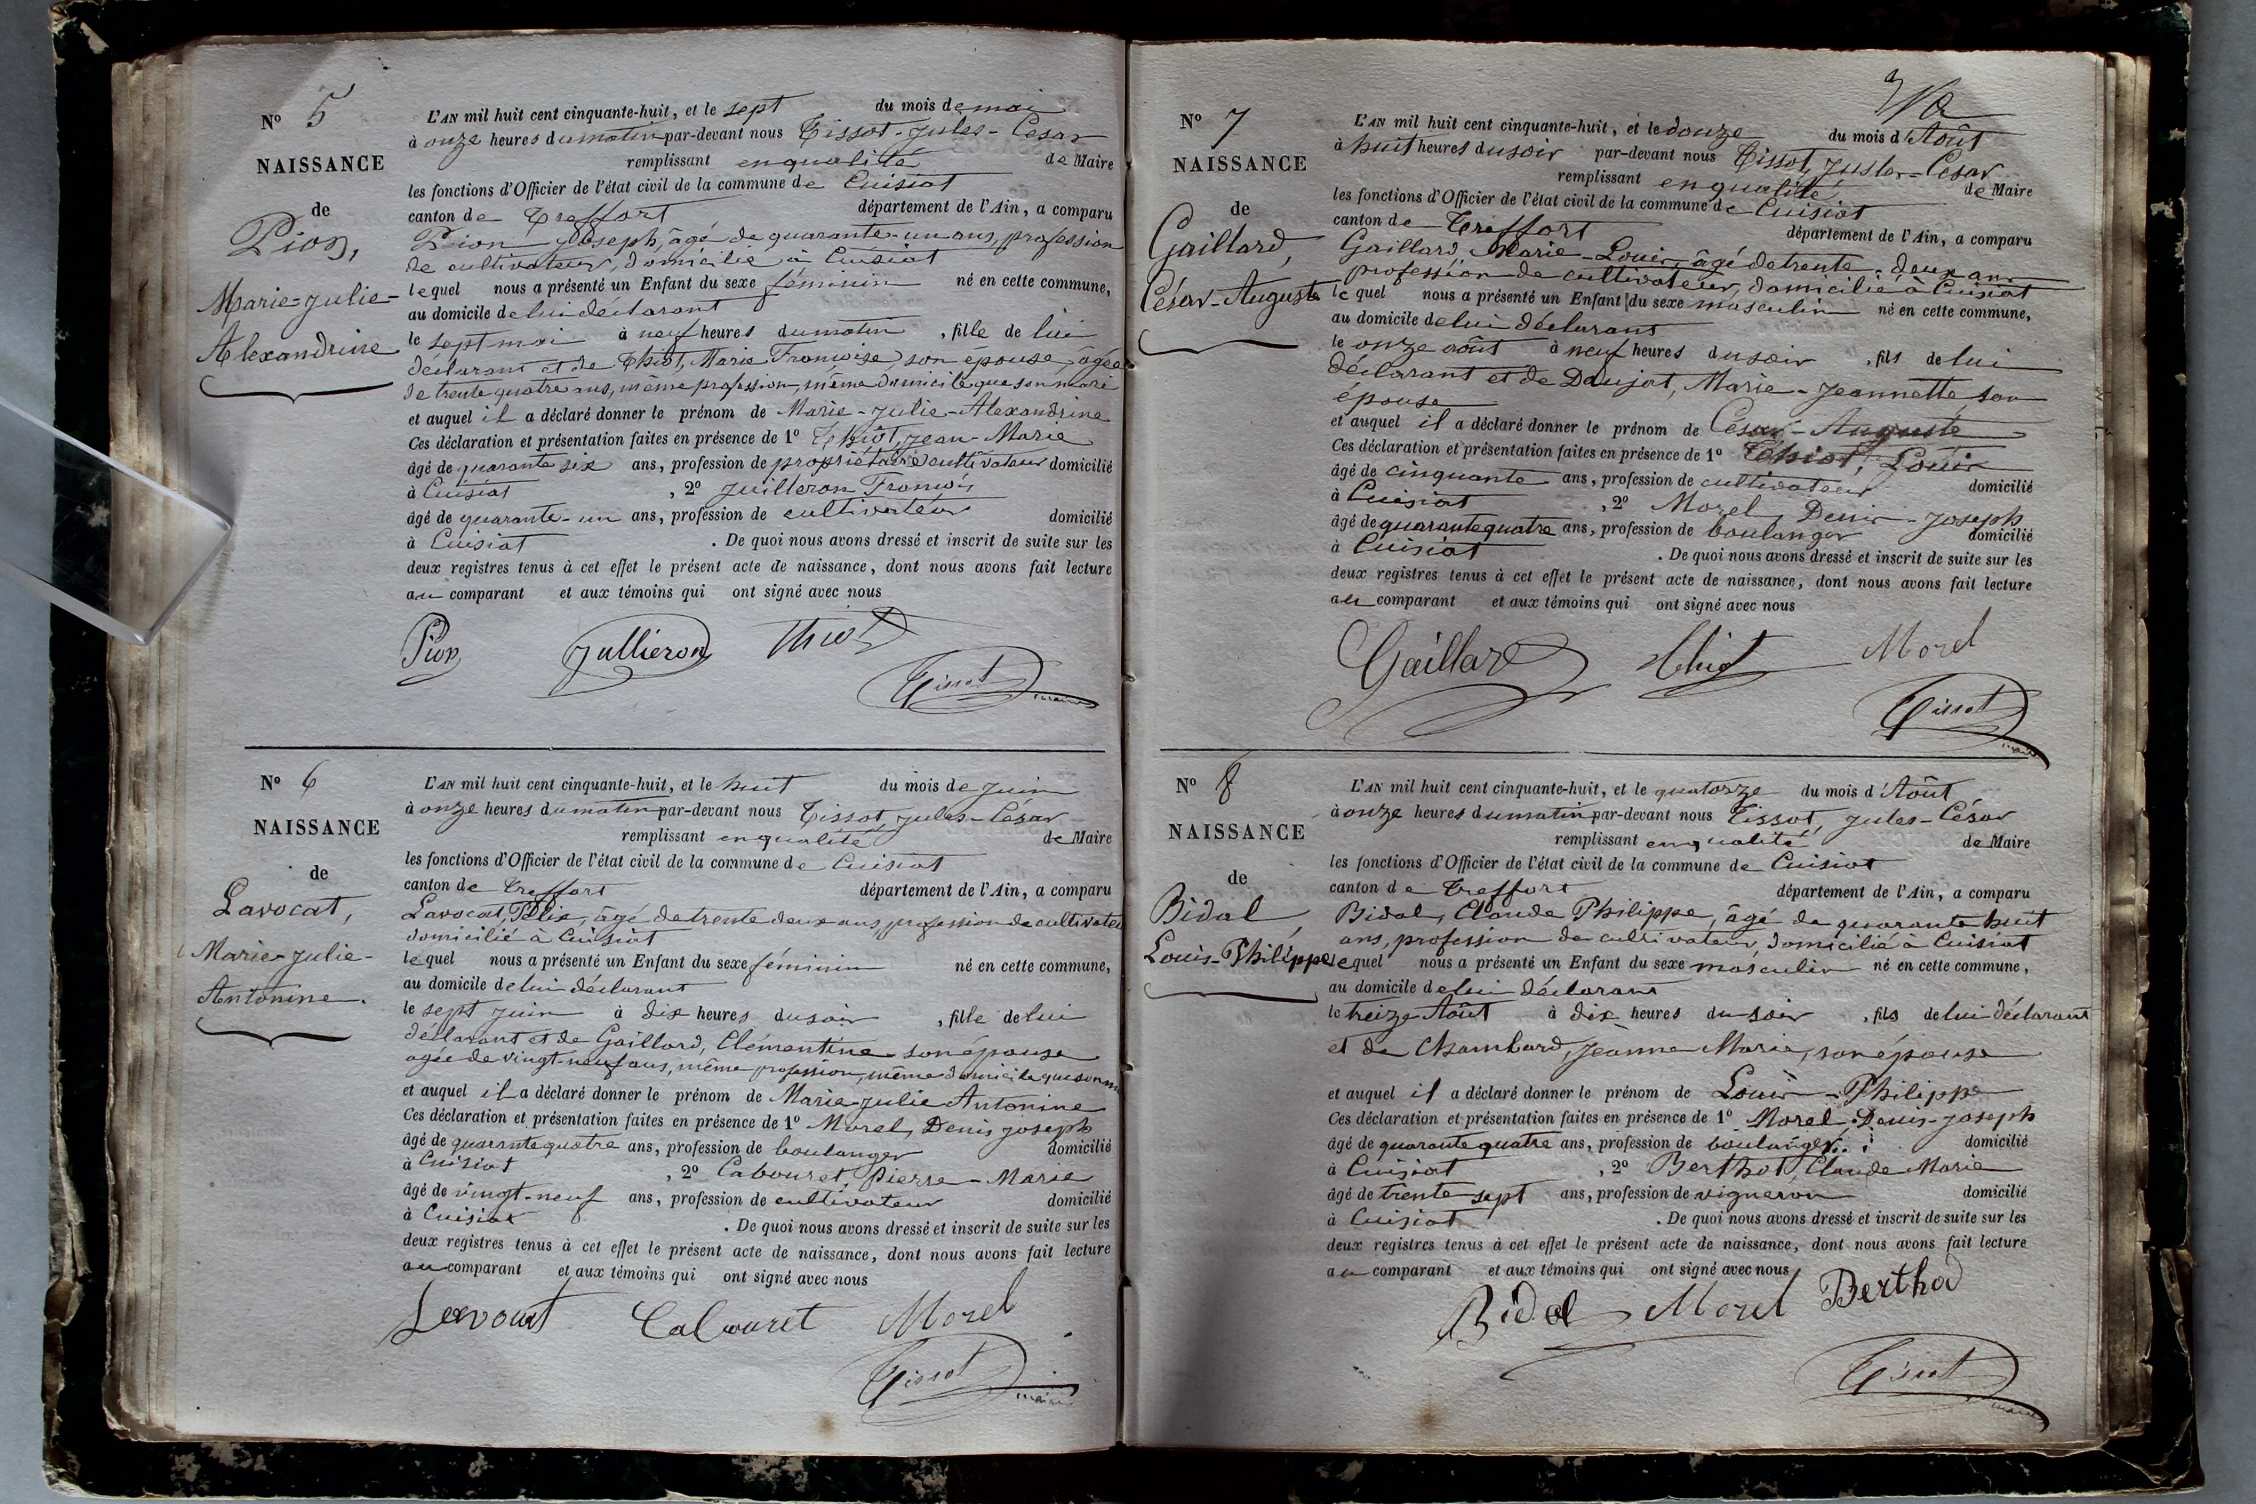 N° 5
NAISSANCE
de
Pion,
Marie-Julie-
Alexandrine
L'AN mil huit cent cinquante-huit, et le sept du mois de mai
à onze heures du matin par-devant nous Tissot-Jules-César
remplissant en qualité de Maire
les fonctions d'Officier de l'état civil de la commune de Cuisiat
canton de Treffort département de l'Ain, a comparu
Pion Joseph, âgé de quarante-un ans, profession
de cultivateur, domicilié à Cuisiat
lequel nous a présenté un Enfant du sexe féminin né en cette commune,
au domicile de lui déclarant
le sept mai à neuf heures du matin, fille de lui
déclarant et de Thiot, Marie Françoise son épouse, âgée
de trente quatre ans, même profession, même domicile que son mari
et auquel il a déclaré donner le prénom de Marie-Julie-Alexandrine
Ces déclaration et présentation faites en présence de 1° Thiôt, Jean-Marie
âgé de quarante six ans, profession de propriétaire cultivateur domicilié
à Cuisiat, 2° Juilleron François
âgé de quarante-un ans, profession de cultivateur domicilié
à Cuisiat. De quoi nous avons dressé et inscrit de suite sur les
deux registres tenus à cet effet le présent acte de naissance, dont nous avons fait lecture
au comparant et aux témoins qui ont signé avec nous
Pion Jullieron Thiot
Tissot maire
N° 6
NAISSANCE
de
Lavocat,
Marie-Julie-
Antonine.
L'AN mil huit cent cinquante-huit, et le huit du mois de Juin
à onze heures du matin par-devant nous Tissot, Jules-César
remplissant en qualité de Maire
les fonctions d'Officier de l'état civil de la commune de Cuisiat
canton de Treffort département de l'Ain, a comparu
Lavocat, âgé de trente deux ans, profession de cultivateur
domicilié à Cuisiat
lequel nous a présenté un Enfant du sexe féminin né en cette commune,
au domicile de lui déclarant
le sept juin à dix heures du soir, fille de lui
déclarant et de Gaillard, Clémentine son épouse
agée de vingt-neuf ans, même profession, même domicile que son mari
et auquel il a déclaré donner le prénom de Marie-Julie Antonine
Ces déclaration et présentation faites en présence de 1° Morel, Denis Joseph
âgé de quarante quatre ans, profession de boulanger domicilié
à Cuisiat, 2° Cabouret, Pierre-Marie
âgé de vingt-neuf ans, profession de cultivateur domicilié
à Cuisiat. De quoi nous avons dressé et inscrit de suite sur les
deux registres tenus à cet effet le présent acte de naissance, dont nous avons fait lecture
au comparant et aux témoins qui ont signé avec nous
Lavocat Cabouret Morel
Tissot maire
N° 7
NAISSANCE
de
Gaillard,
César-Auguste
L'AN mil huit cent cinquante-huit, et le douze du mois d'Août
à huit heures du soir par-devant nous Tissot, Jules-César
remplissant en qualité de Maire
les fonctions d'Officier de l'état civil de la commune de Cuisiat
canton de Treffort département de l'Ain, a comparu
Gaillard, Marie-Louis, âgé de trente-deux ans
profession de cultivateur, domicilié à Cuisiat
lequel nous a présenté un Enfant du sexe masculin né en cette commune,
au domicile de lui déclarant
le onze août à neuf heures du soir, fils de lui
déclarant et de Daujat, Marie-Jeannette, son
épouse
et auquel il a déclaré donner le prénom de César-Auguste
Ces déclaration et présentation faites en présence de 1° Thiot, Louis
âgé de cinquante ans, profession de cultivateur domicilié
à Cuisiat, 2° Morel, Denis-Joseph
âgé de quarante quatre ans, profession de boulanger domicilié
à Cuisiat. De quoi nous avons dressé et inscrit de suite sur les
deux registres tenus à cet effet le présent acte de naissance, dont nous avons fait lecture
au comparant et aux témoins qui ont signé avec nous
Gaillard Thiot Morel
Tissot maire
N° 8
NAISSANCE
de
Bidal
Louis-Philippe
L'AN mil huit cent cinquante-huit, et le quatorze du mois d'Août
à onze heures du matin par-devant nous Tissot, Jules-César
remplissant en qualité de Maire
les fonctions d'Officier de l'état civil de la commune de Cuisiat
canton de Treffort département de l'Ain, a comparu
Bidal, Claude Philippe, âgé de quarante huit
ans, profession de cultivateur, domicilié à Cuisiat
lequel nous a présenté un Enfant du sexe masculin né en cette commune,
au domicile de lui déclarant
le treize Août à dix heures du soir, fils de lui déclarant
et de Chambard, Jeanne Marie, son épouse
et auquel il a déclaré donner le prénom de Louis-Philippe
Ces déclaration et présentation faites en présence de 1° Morel Denis-Joseph
âgé de quarante quatre ans, profession de boulanger domicilié
à Cuisiat, 2° Berthot, Claude Marie
âgé de trente sept ans, profession de vigneron domicilié
à Cuisiat. De quoi nous avons dressé et inscrit de suite sur les
deux registres tenus à cet effet le présent acte de naissance, dont nous avons fait lecture
au comparant et aux témoins qui ont signé avec nous
Bidal Morel Berthod
Tissot maire